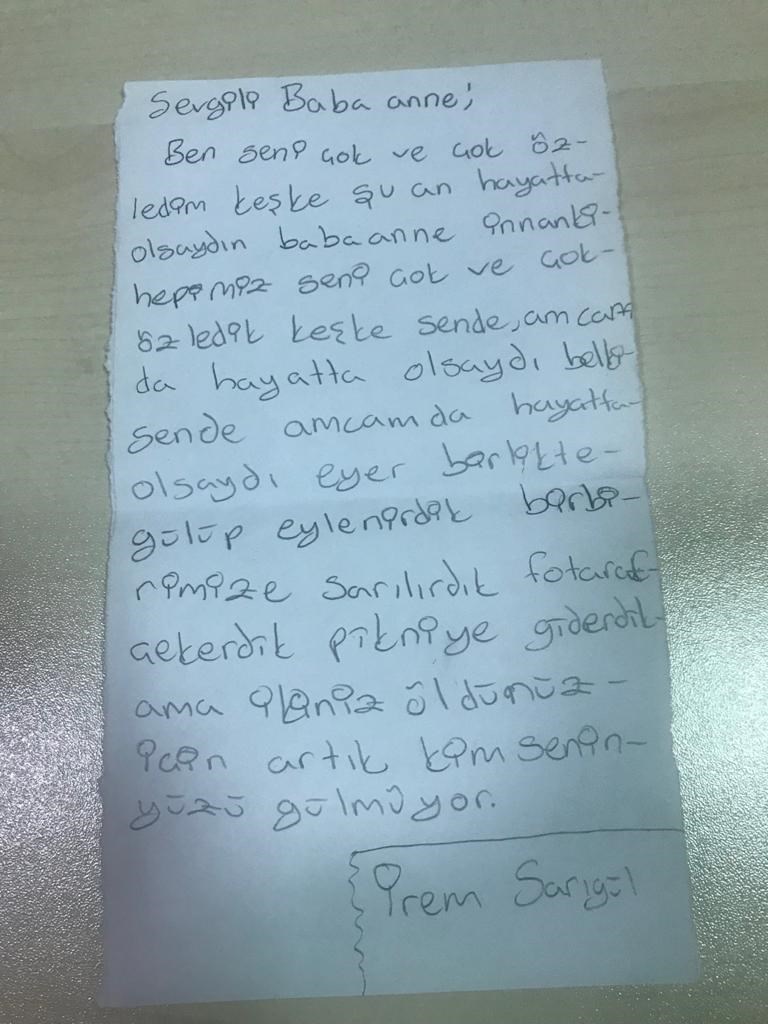 Sevgili Baba anne;
Ben seni çok ve çok öz-
ledim keşke şu an hayatta-
olsaydın babaanne innanki-
hepimiz seni çok ve çok-
özledik keşke sende, amcam
da hayatta olsaydı belki-
sende amcamda hayatta-
olsaydı eyer birlikte-
gülüp eylenirdik birbi-
rimize sarılırdık fotaraf-
çekerdik pikniye giderdik-
ama ikiniz öldünüz-
için artık kimsenin-
yüzü gülmüyor.
İrem Sarıgül